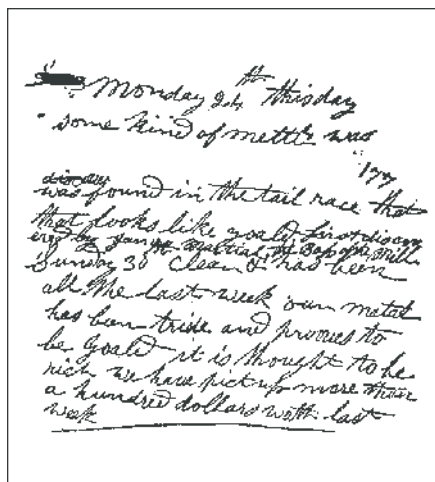 Monday 24th this day
some kind of mettle was
was found in the tail race that
that looks like goald first discov
ered by James Martial the Boss of the Mill
Sunday 30 clean & has been
all the last week our metal
has ben tride and prooves to
be goald it is thought to be
rich we have pict up more than
a hundred dollars woth last
week